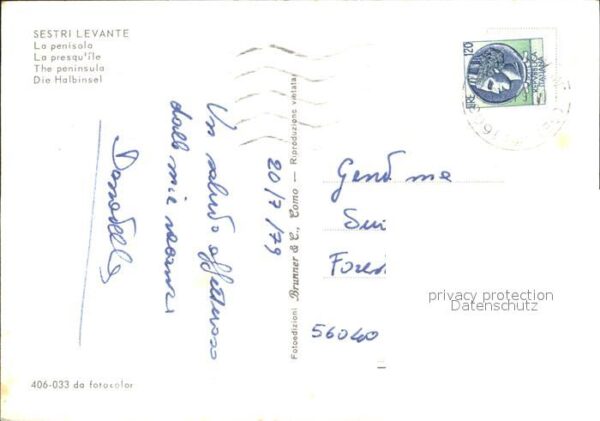 SESTRI LEVANTE
La penisola
La presqu'île
The peninsula
Die Halbinsel
Un saluto affettuoso
dalle mie vacanze
Donatella
20/7/79
Fotoedizioni Brunner & C., Como — Riproduzione vietata
LIRE 120
REPVBBLICA
ITALIANA
Gent.ma
56040
privacy protection
Datenschutz
406-033 da fotocolor